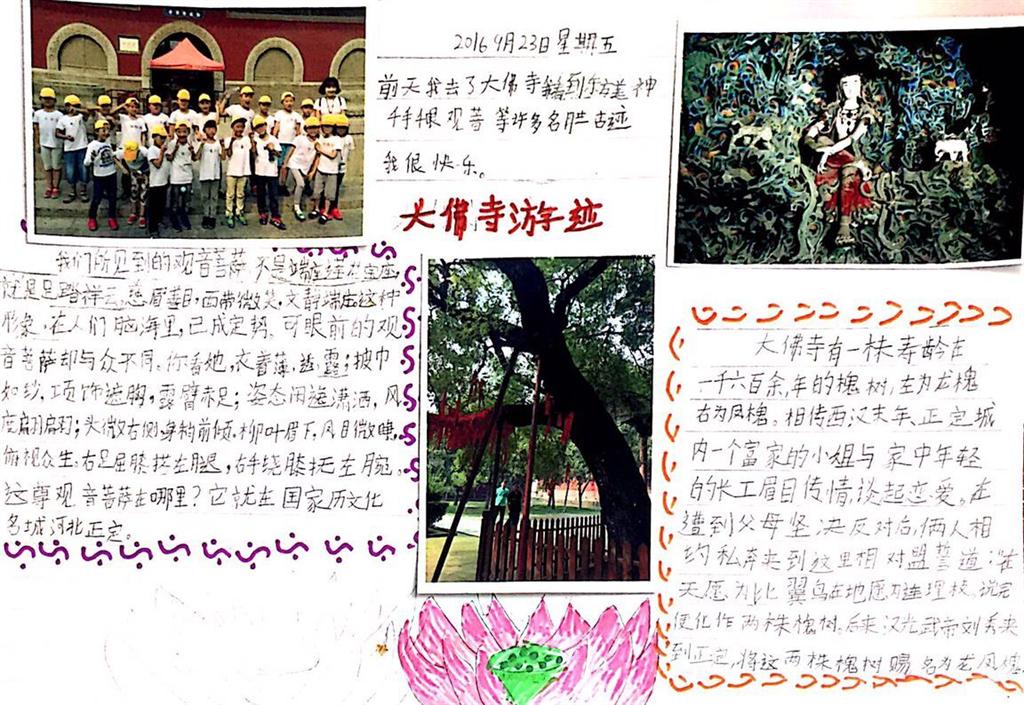 2016 9月23日星期五
前天我去了大佛寺看到东方美神
千手千眼观菩等许多名胜古迹
我很快乐。
大佛寺游学迹
我们所见到的观音菩萨,不是端座莲花宝座
就是足踏祥云,慈眉善目,面带微笑,文静端庄这种
形象,在人们脑海里,已成定势,可眼前的观
音菩萨却与众不同,你看她,衣着薄,透露;披巾
如纱,项饰遮胸,露臂赤足;姿态闲逸潇洒,风
度翩翩;头微右侧身稍前倾,柳叶眉下,凤目微睁,
俯视众生,右足屈膝拱左腿,右手绕膝抚左腕。
这尊观音菩萨在哪里?它就在国家历文化
名城河北正定。
大佛寺有一株寿龄在
一千六百余年的槐树,左为龙槐
右为凤槐。相传西汉末年,正定城
内一个富家的小姐与家中年轻
的长工眉目传情,谈起恋爱。在
遭到父母坚决反对后,俩人相
约私奔来到这里相对盟誓道:"在
天愿为比翼鸟在地愿为连理枝。说完
便化作两株槐树。后来汉光武帝刘秀来
到正定,将这两株槐树赐名为龙凤槐